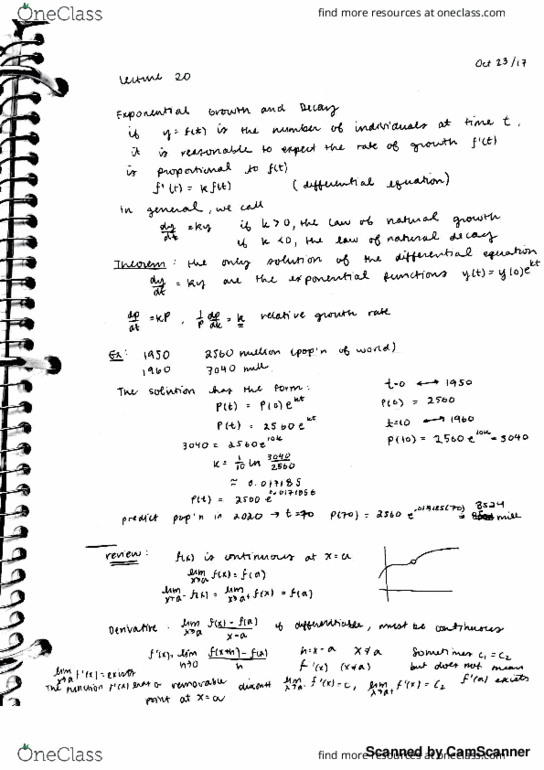 OneClass
find more resources at oneclass.com
Oct 23/17
Lecture 20
Exponential Growth and Decay
if y = f(t) is the number of individuals at time t,
it is reasonable to expect the rate of growth f'(t)
is proportional to f(t)
f'(t) = k f(t) (differential equation)
In general, we call
dy/dt = ky if k > 0, the law of natural growth
if k < 0, the law of natural decay
Theorem: the only solution of the differential equation
dy/dt = ky are the exponential functions y(t) = y(0)e^kt
dp/dt = kP, 1/P dp/dk = k relative growth rate
Ex: 1950 2560 million (pop'n of world)
1960 3040 mill
The solution has the form: t=0 ↔ 1950
P(t) = P(0)e^kt P(0) = 2560
P(t) = 2560e^kt t=10 ↔ 1960
3040 = 2560e^10k P(10) = 2560e^10k = 3040
k = 1/10 ln 3040/2560
≈ 0.017185
P(t) = 2560 e^0.017185t
predict pop'n in 2020 → t=70 P(70) = 2560 e^.017185(70) = 8524 mill
review: f(x) is continuous at x=a
lim x→a f(x) = f(a)
lim x→a- f(x) = lim x→a+ f(x) = f(a)
Derivative: lim x→a f(x) - f(a) / x-a if differentiable, must be continuous
f'(x), lim h→0 f(x+h) - f(a) / h h = x-a x≠a Sometimes c1 = c2
lim x→a f'(x) = exists f'(x) (x≠a) but does not mean
The function f'(x) has a removable discont lim x→a- f'(x) = c1 lim x→a+ f'(x) = c2 f'(a) exists
point at x=a
Scanned by CamScanner
OneClass
find more resources at oneclass.com